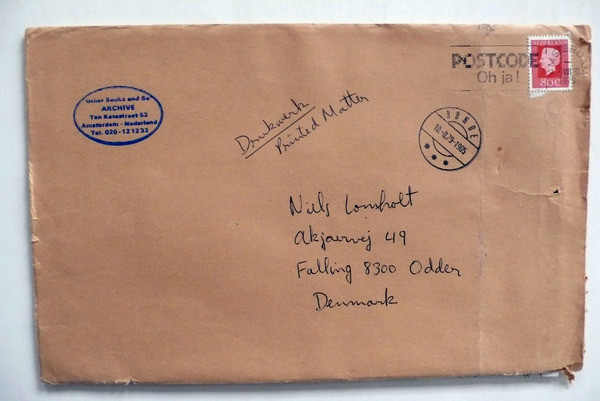 Other Books and So
ARCHIVE
Ten Katestraat 53
Amsterdam - Nederland
Tel. 020-121233
Drukwerk
Printed Matter
POSTCODE
Oh ja!
NEDERLAND
80c
Niels Lomholt
Akjaervej 49
Falling 8300 Odder
Denmark